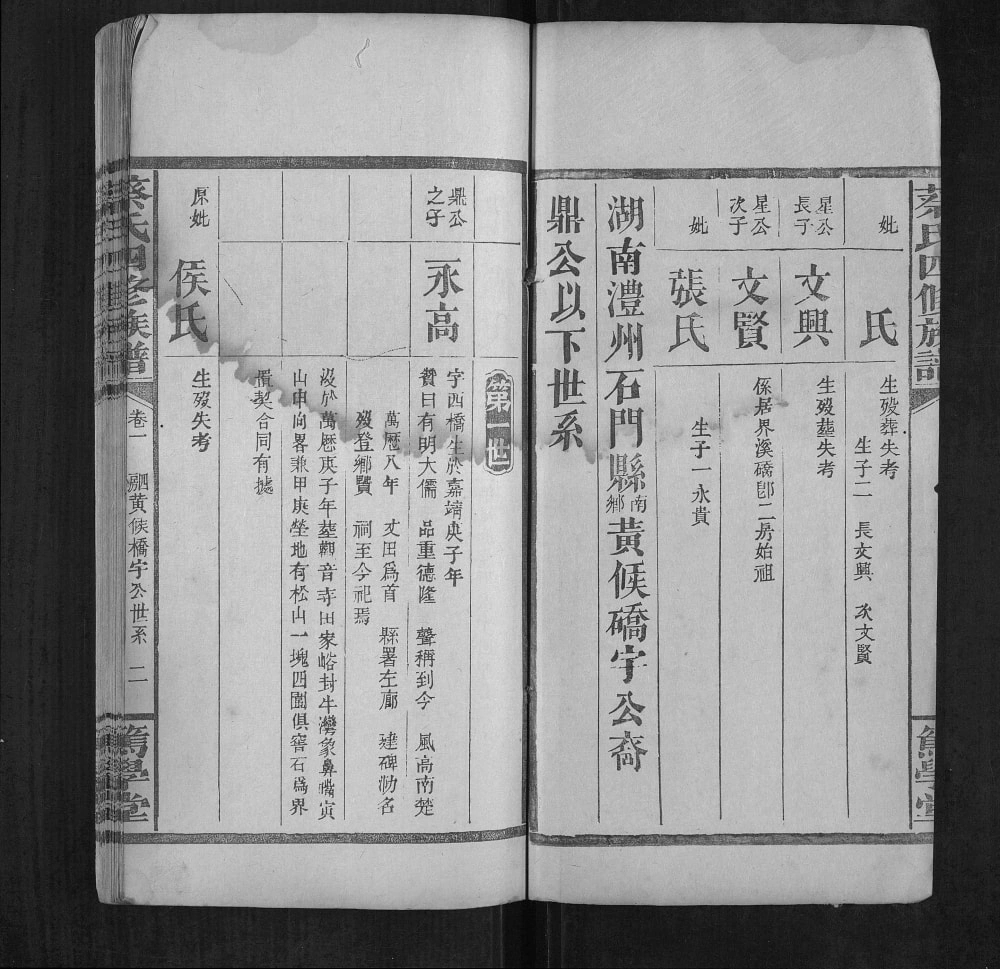 蔡氏四修族譜
篤學堂
妣
氏
生歿葬失考
生子二 長文興 次文賢
星公長子
文興
生歿葬失考
星公次子
文賢
係居界溪磽郎二房始祖
妣
張氏
生子一永貴
湖南澧州石門縣南鄉黃候磽宇公裔
鼎公以下世系
第一世
鼎公之子
永高
字西橋生於嘉靖庚子年
贊曰有明大儒 品重德隆 聲稱到今 風高南楚
萬歷八年 丈田爲首 縣署左廊 建碑泐名
歿登鄉賢 祠至今祀焉
沒於萬歷庚子年塟觀音寺田家峪封牛灣象鼻嘴寅
山申向畧兼甲庚塋地有松山一塊四圍俱窖石爲界
價契合同有據
原妣
侯氏
生歿失考
蔡氏四修族譜
卷一
黃候橋宇公世系
二
篤學堂